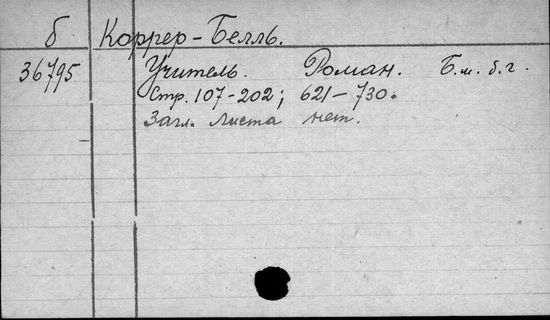 б Коррер-Белль.
36795 Учитель. Роман. Б.м.б.г.
Стр. 107-202; 621-730.
Загл. листа нет.